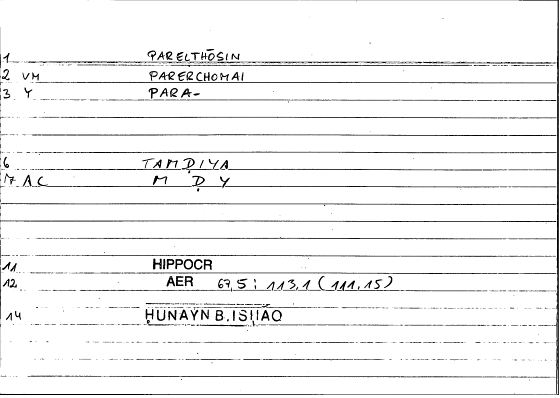 1 PARELTHŌSIN
2 VM PARERCHOMAI
3 Y PARA-
6 TAMḌIYA
7 AC M Ḍ Y
11 HIPPOCR
12 AER 67,5 ; 113,1 (111,15)
14 ḤUNAYN B. ISḤAQ